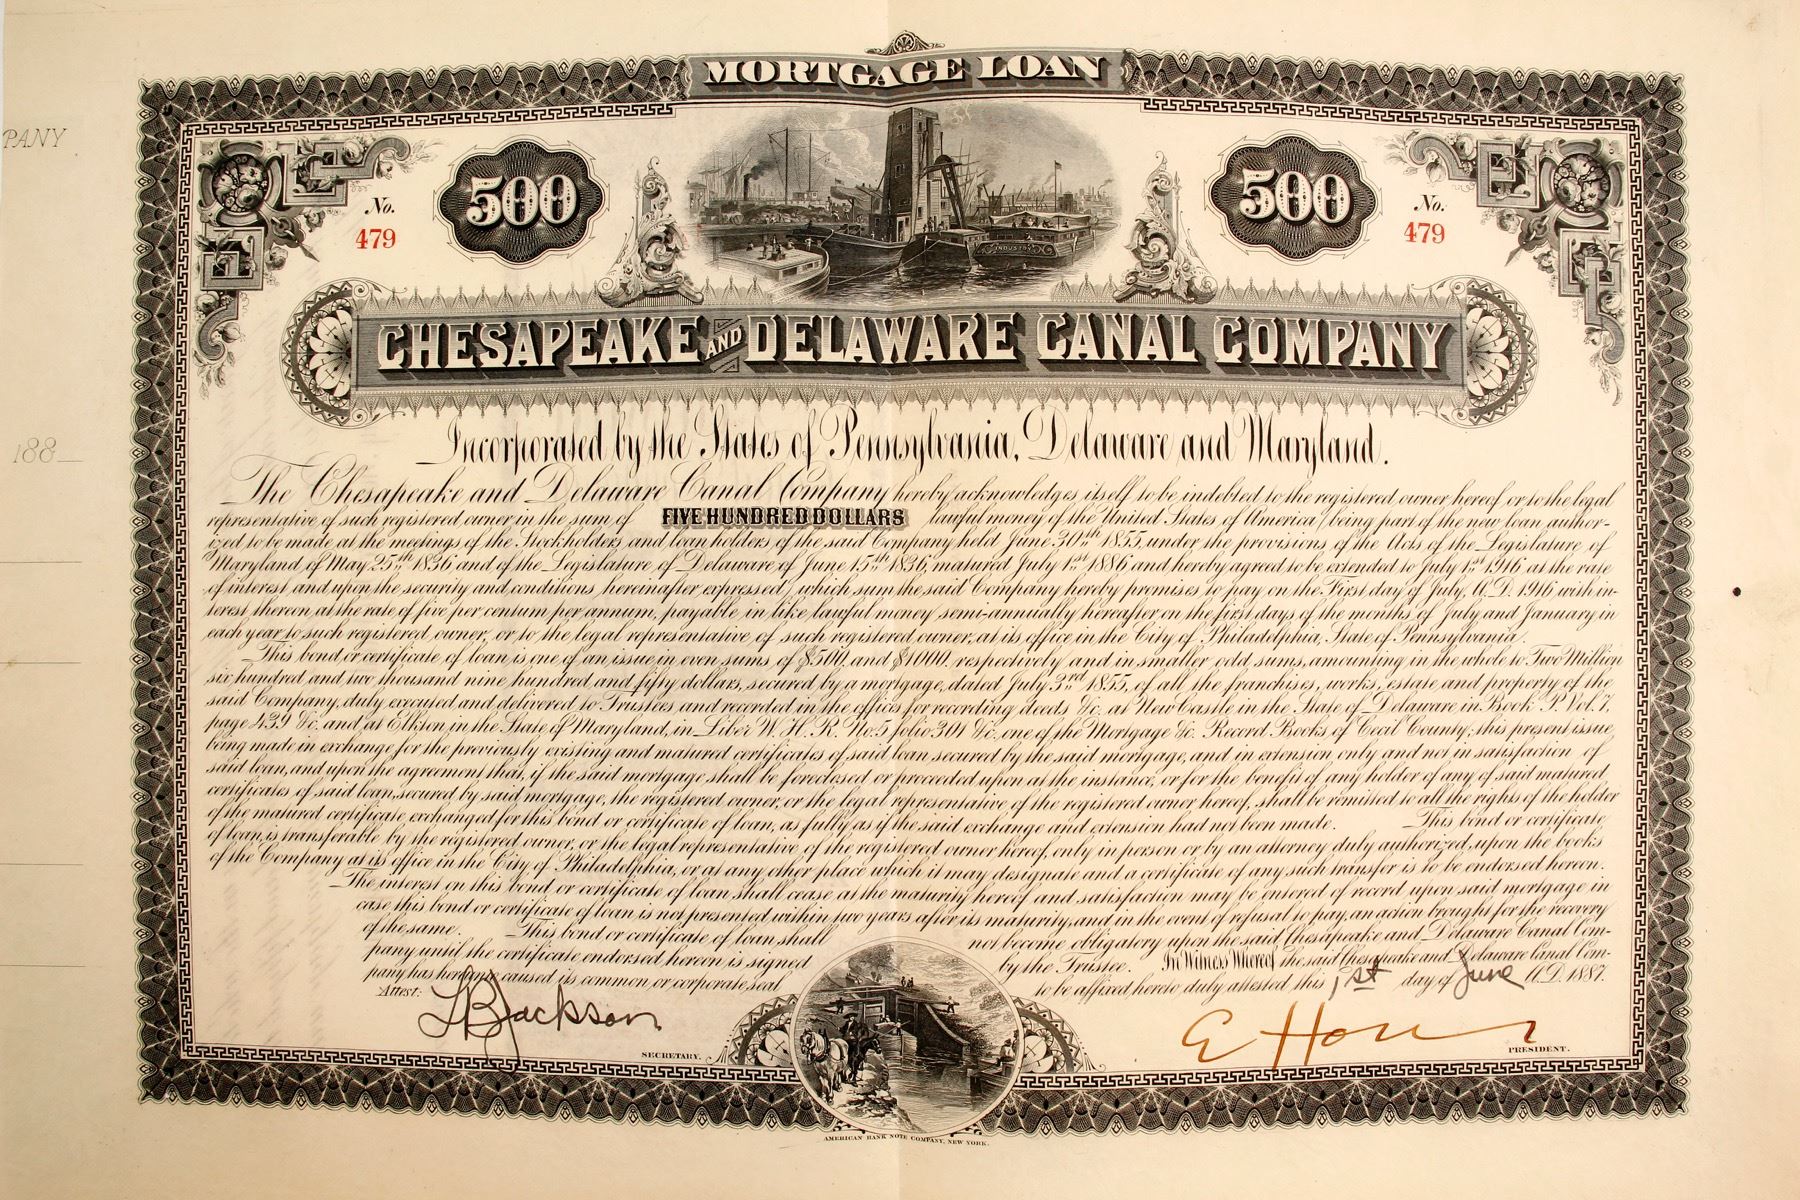 MORTGAGE LOAN
PANY
500
500
No.
479
No.
479
INDUSTRY
CHESAPEAKE AND DELAWARE CANAL COMPANY
Incorporated by the States of Pennsylvania, Delaware and Maryland.
188_
The Chesapeake and Delaware Canal Company hereby acknowledges itself to be indebted to the registered owner hereof or to the legal
representative of such registered owner in the sum of FIVE HUNDRED DOLLARS lawful money of the United States of America (being part of the new loan author-
ized to be made at the meetings of the Stockholders and loan holders of the said Company held June 30th 1855, under the provisions of the Acts of the Legislature of
Maryland of May 25th 1836 and of the Legislature of Delaware of June 15th 1836, matured July 1st 1886 and hereby agreed to be extended to July 1st 1916 at the rate
of interest and upon the security and conditions hereinafter expressed) which sum the said Company hereby promises to pay on the First day of July, A.D. 1916 with in-
terest thereon at the rate of five per centum per annum, payable in like lawful money semi-annually hereafter on the first days of the months of July and January in
each year to such registered owner, or to the legal representative of such registered owner, at its office in the City of Philadelphia, State of Pennsylvania.
This bond or certificate of loan is one of an issue in even sums of $500, and $1000, respectively and in smaller odd sums, amounting in the whole to Two Million
six hundred and two thousand nine hundred and fifty dollars, secured by a mortgage, dated July 3rd 1855, of all the franchises, works, estate, and property of the
said Company, duly executed and delivered to Trustees and recorded in the offices for recording deeds &c. at New Castle in the State of Delaware in Book P. Vol. 7,
page 439 &c. and at Elkton in the State of Maryland, in Liber W. H. R. No 5 folio 301 &c, one of the Mortgage &c. Record Books of Cecil County; this present issue,
being made in exchange for the previously existing and matured certificates of said loan secured by the said mortgage, and in extension only and not in satisfaction of
said loan, and upon the agreement that, if the said mortgage shall be foreclosed or proceeded upon at the instance, or for the benefit of any holder of any of said matured
certificates of said loan, secured by said mortgage, the registered owner, or the legal representative of the registered owner hereof, shall be remitted to all the rights of the holder
of the matured certificate exchanged for this bond or certificate of loan, as fully as if the said exchange and extension had not been made. This bond or certificate,
of loan, is transferable by the registered owner, or the legal representative of the registered owner hereof, only in person or by an attorney duly authorized, upon the books
of the Company at its office in the City of Philadelphia, or at any other place which it may designate and a certificate of any such transfer is to be endorsed hereon.
The interest on this bond or certificate of loan shall cease at the maturity hereof and satisfaction may be entered of record upon said mortgage in
case this bond or certificate of loan is not presented within two years after its maturity, and in the event of refusal to pay, an action brought for the recovery
of the same. This bond or certificate of loan shall not become obligatory upon the said Chesapeake and Delaware Canal Com-
pany until the certificate endorsed hereon is signed by the Trustee. In Witness Whereof the said Chesapeake and Delaware Canal Com-
pany has hereunto caused its common or corporate seal to be affixed, hereto duly attested this 1st day of June A.D. 1887.
Attest:
SECRETARY.
PRESIDENT.
AMERICAN BANK NOTE COMPANY, NEW YORK.